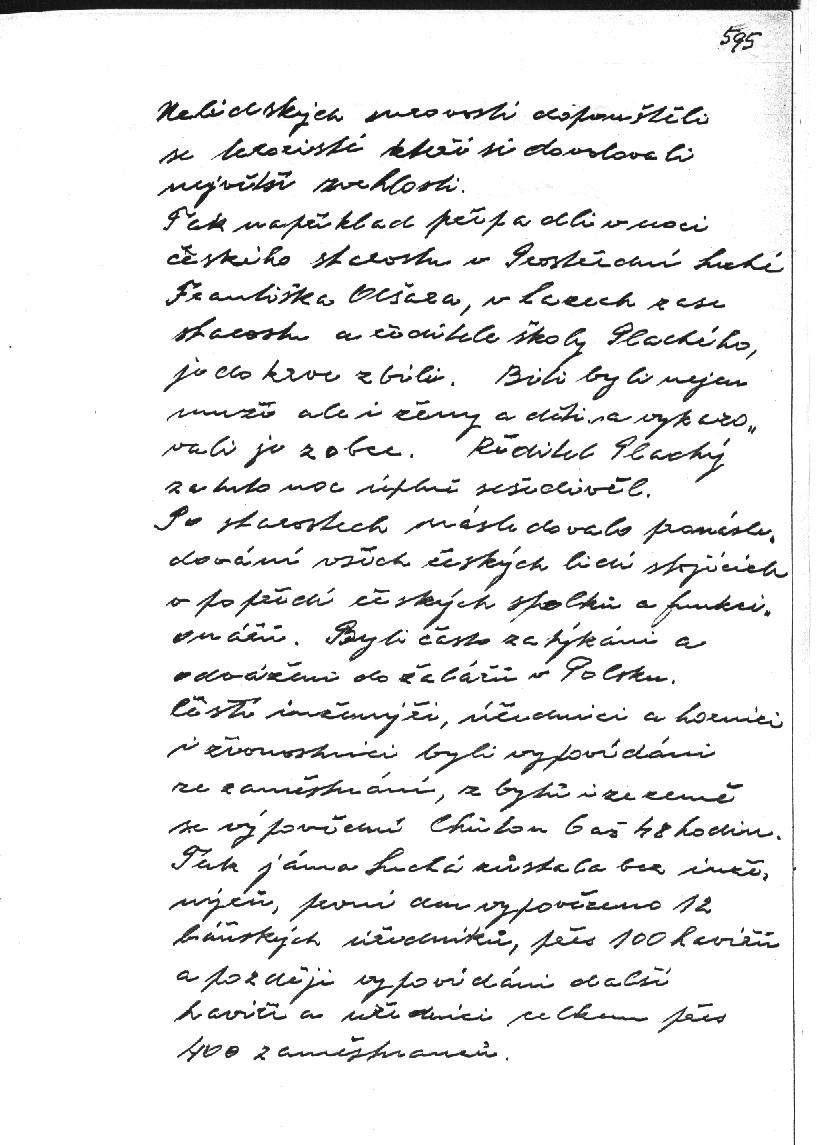 595
Nelidských surovostí dopouštěli
se teroristé kteří si dovolovali
největší zvrhlosti.
Tak například přepadli v noci
českého starostu v Prostřední Suché
Františka Olšara, v Lazech zase
starostu a ředitele školy Plachého,
je do krve zbili. Biti byli nejen
muži ale i ženy a děti a vykazo„
vali je z obce. Ředitel Plachý
za tuto noc úplně sešedivěl.
Po starostech následovalo pronásle„
dování všech českých lidí stojících
v popředí českých spolků a funkci„
onářů. Byli často zatýkáni a
odváženi do žalářů v Polsku.
Čeští inženýři, úředníci a horníci
i živnostníci byli vypovídáni
ze zaměstnání, z bytů i ze země
se výpovědní lhůtou 6 až 48 hodin.
Tak jáma Suchá zůstala bez inže„
nýrů, první den vypovězeno 12
báňských úředníků, přes 100 havířů
a později vypovídáni další
havíři a úředníci celkem přes
400 zaměstnanců.